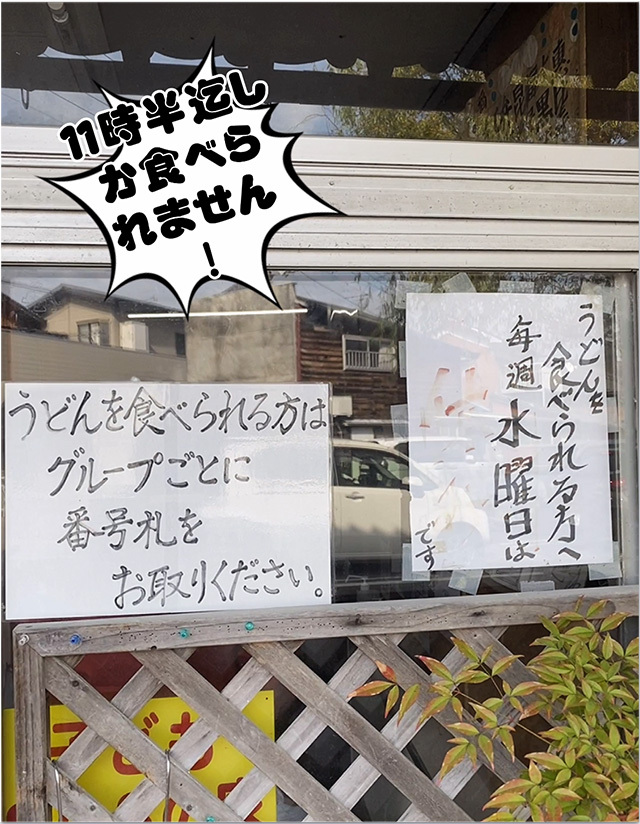 11時半迄し
か食べら
れません
!
うどんを食べられる方は
グループごとに
番号札を
お取りください。
うどんを
食べられる方へ
毎週
水曜日は
です